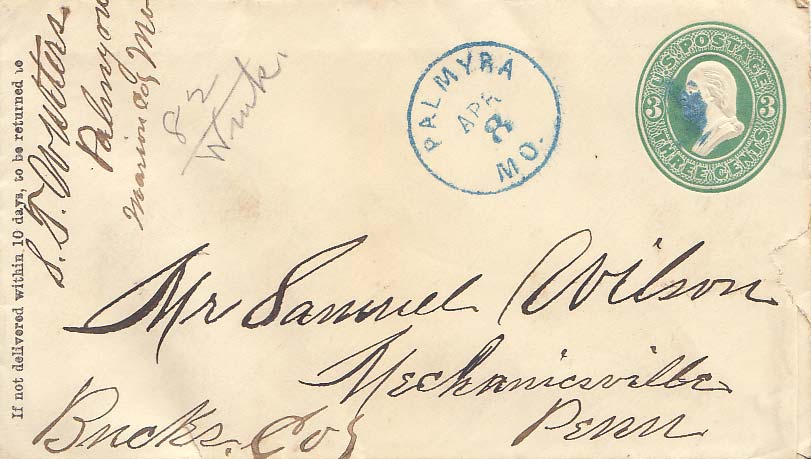 If not delivered within 10 days, to be returned to
Palmyra
Marion Co, Mo
82
PALMYRA
APR
8
MO.
U.S. POSTAGE
3 3
THREE CENTS
Mr Samuel Wilson
Mechanicsville
Bucks. Co, Penn